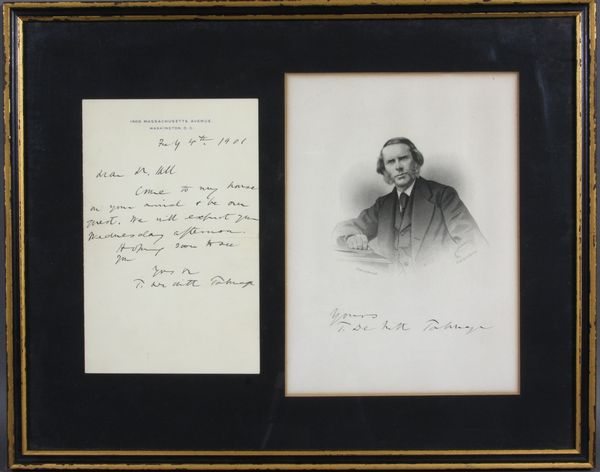 1400 MASSACHUSETTS AVENUE,
WASHINGTON, D.C.
4th 1901
Dear Dr.
Come to my house
on your arrival & be our
guest. We will expect you
Wednesday afternoon.
Hoping soon to see
you
Yours
T. De Witt Talmage
Yours
T. De Witt Talmage